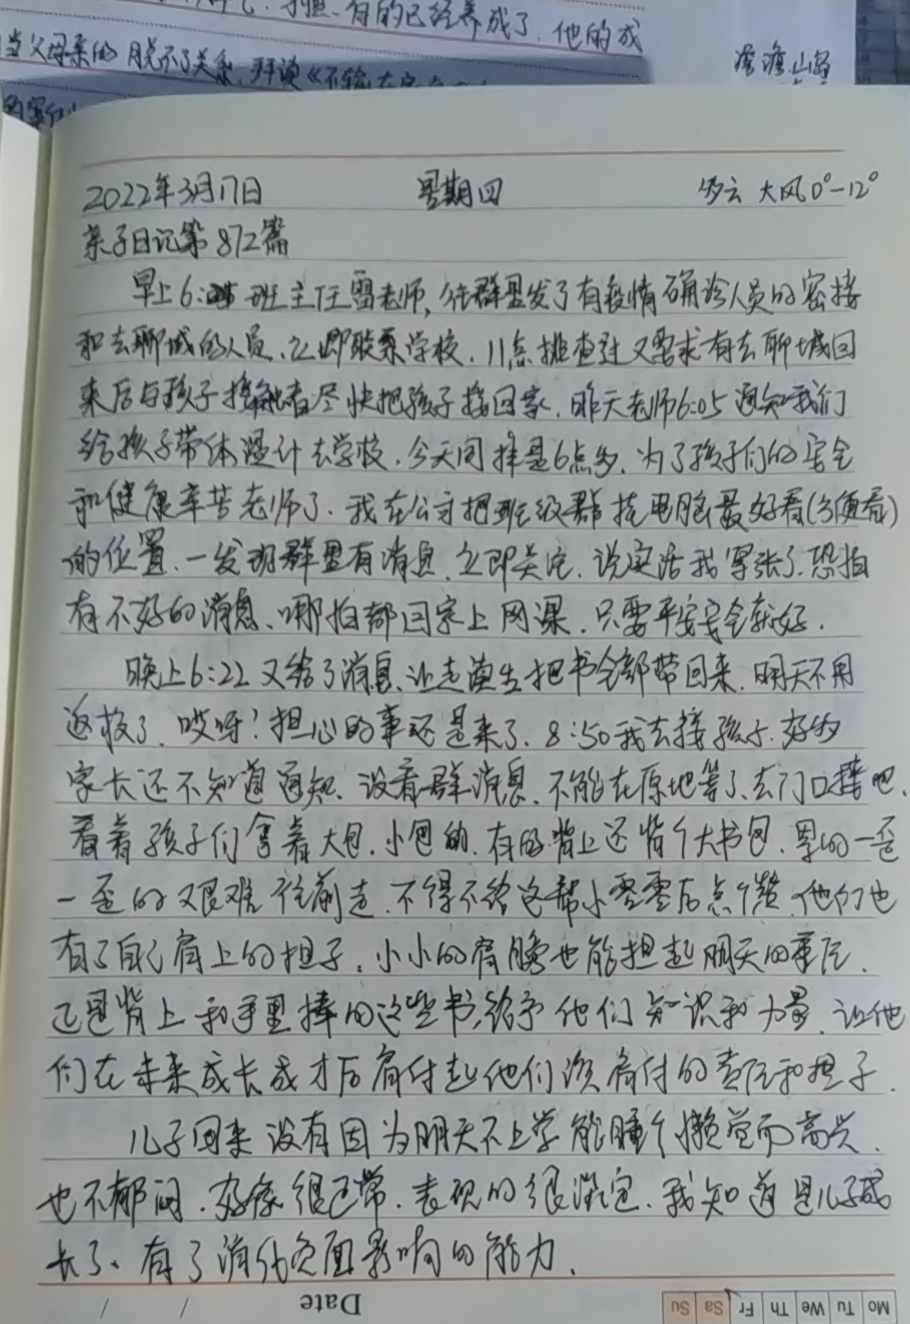 有的已经养成了，他的成
当父母亲的脱不了关系，拜读《不输在家
2022年3月17日 星期四 多云 大风0°-12°
亲子日记第872篇
早上6: 班主任雷老师，在群里发了有疫情确诊人员的密接
和去聊城的人员，立即联系学校，11点排查过又要求有去聊城回
来后与孩子接触者尽快把孩子接回家，昨天老师6:05通知我们
给孩子带体温计去学校，今天问择是6点多，为了孩子们的安全
和健康辛苦老师了，我在公司把班级群找电脑最好看(方便看)
的位置，一发现群里有消息，立即关注，说实话我紧张了，恐怕
有不好的消息，哪怕都回家上网课，只要平安安全就好，
晚上6:22又给了消息，让走读生把书全部带回来，明天不用
返校了，哎呀！担心的事还是来了，8:50我去接孩子，好多
家长还不知道通知，没看群消息，不能在原地等了，去门口接吧，
看着孩子们拿着大包，小包的，有的背上还背个大书包，累的一歪
一歪的艰难往前走，不得不给这帮小零零后点个赞，他们也
有了自己肩上的担子，小小的肩膀也能担起明天的重任，
正是背上和手里捧的这些书，给予他们知识和力量，让他
们在未来成长成才后肩付起他们须肩付的责任和担子，
儿子回来没有因为明天不上学能睡个懒觉而高兴，
也不郁闷，好像很正常，表现的很淡定，我知道是儿子成
长了，有了消化负面影响的能力，
Date
Mo Tu We Th Fr Sa Su